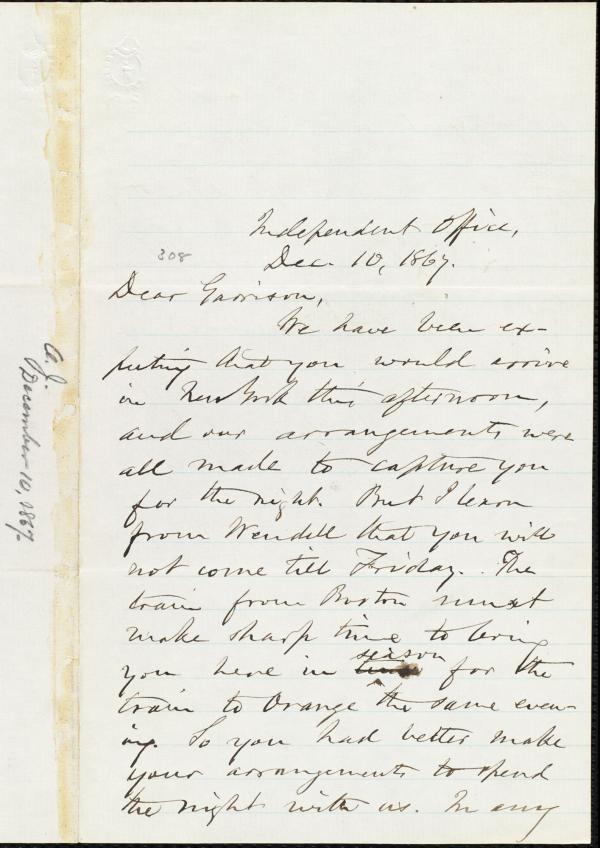 Independent Office,
Dec. 10, 1867.
308
Dear Garrison,
We have been ex-
pecting that you would arrive
in New York this afternoon,
and our arrangements were
all made to capture you
for the night. But I learn
from Wendell that you will
not come till Friday. The
train from Boston must
make sharp time to bring
you here in time season for the
train to Orange the same even-
ing. So you had better make
your arrangements to spend
the night with us. In any
December 10, 1867.